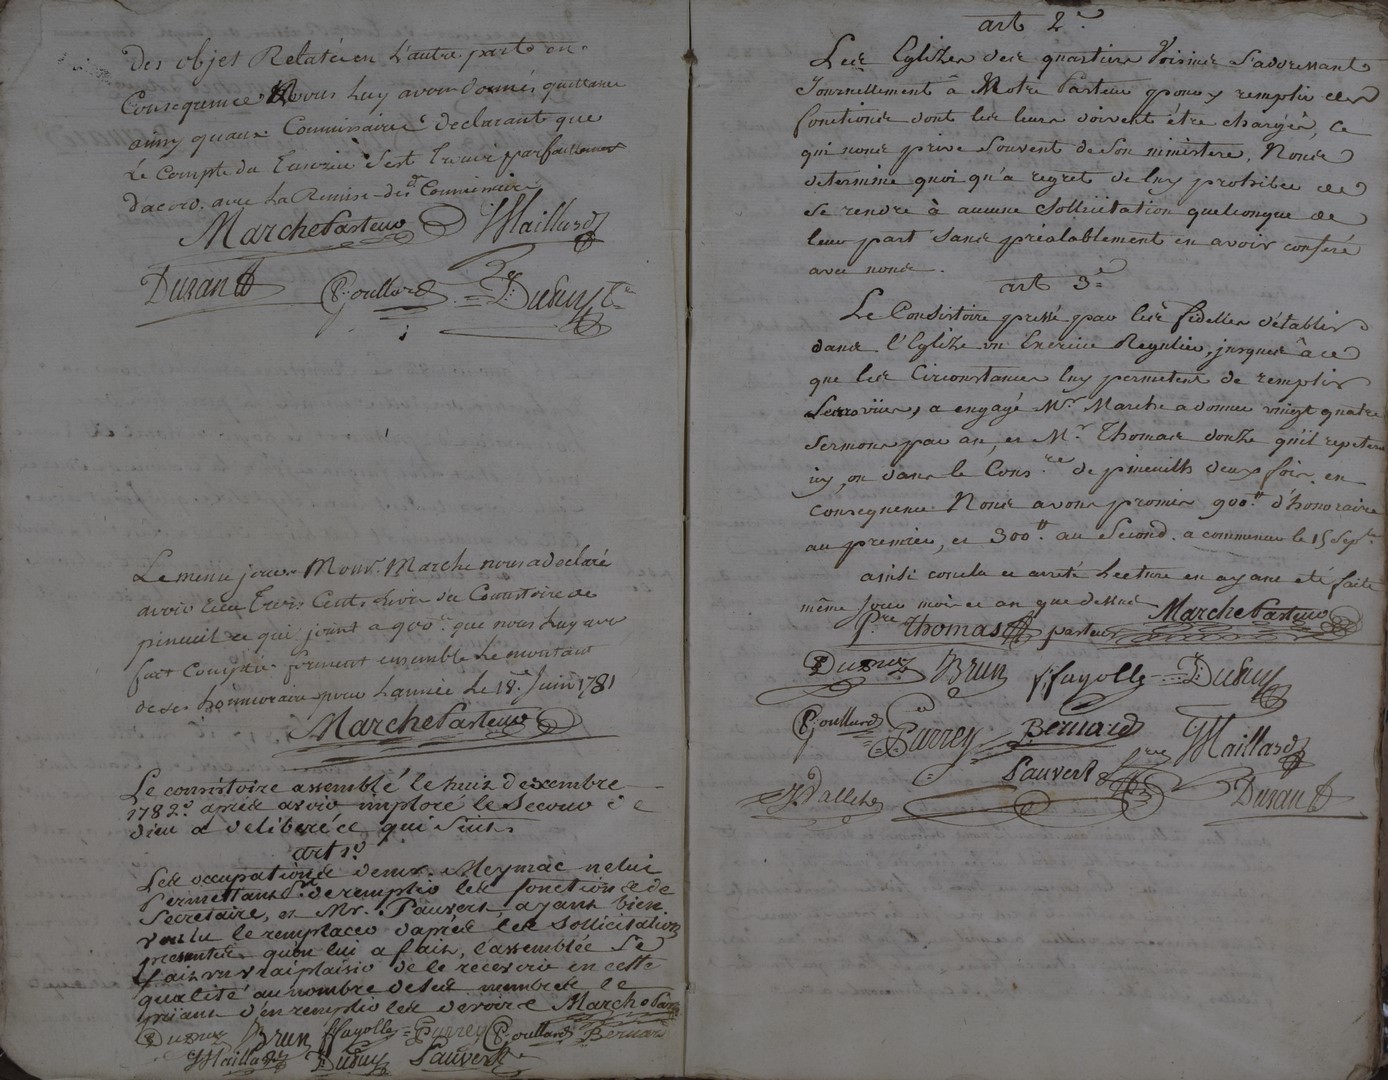 Des objet Relatée en L'autre parts en
Consequence Nous Luy avons donné quittance
ainsy qu'aux Commissaire declarant que
Le Compte du Tresorier s'est trouvé parfaitement
d'acord avec La Remise des dt Commissaires
Marche Pasteur JMaillard
Durand P. Goullard Dupuy
Le meme jour Monsr. Marche nous a declaré
avoir reçu trois Cents Livres du Consistoire de
pineuil ce qui joint a 900tt que nous Luy avons
fait Compter forment ensemble Le montant
de ses honnoraires pour L'année Le 18e Juin 1781
Marche Pasteur
Le consistoire assemblé le huit decembre
1782 après avoir imploré le secour de
Dieu a deliberé ce qui suit
art 1r
Les occupations de mr. Meymac ne lui
permettant pas de remplir les fonctions de
Secretaire, et Mr. Pauvert, ayant bien
voulu le remplacer d'après les sollicitations
presentes qu'on lui a fait, l'assemblée se
fait un vrai plaisir de le recevoir en cette
qualité au nombre de ses membres le
priant d'en remplir les devoirs Marche Pas
Brun ffayolle Guerrey P. Goullard Bernard
JMaillard Dupuy Pauvert
art 2e
Les Eglizes des quartiers Voisins s'adressant
Journellement à Notre Pasteur pour y remplir des
fonctions dont les leurs doivent être chargés, ce
qui nous prive souvent de son ministere, Nous
determine quoi qu'a regret de luy prohiber de
se rendre à aucune sollicitation quelconque de
leur part sans préalablement en avoir conferé
avec nous.
art 3e
Le Consistoire pressé par les fidelles d'établir
dans l'Eglize un Exercice Regulier, jusques à ce
que les Circonstances luy permetent de remplir
Leurs vües, a engagé Mr. Marche a donner vingt quatre
sermons par an, et Mr. Thomas douze qu'il repetera
icy, ou dans le Consre de pineuilh deux fois, en
consequence Nous avons promis 900tt d'honoraire
au premier, et 300tt au Second. a commencer le 15 Septre
ainsi conclu et arreté Lecture en ayant eté faite
même jour mois et an que dessus Marche Pasteur
Pre Thomas pasteur
Brun ffayolle Dupuy
P. Goullard Guerrey Bernard JMaillard
Pauvert
Durand